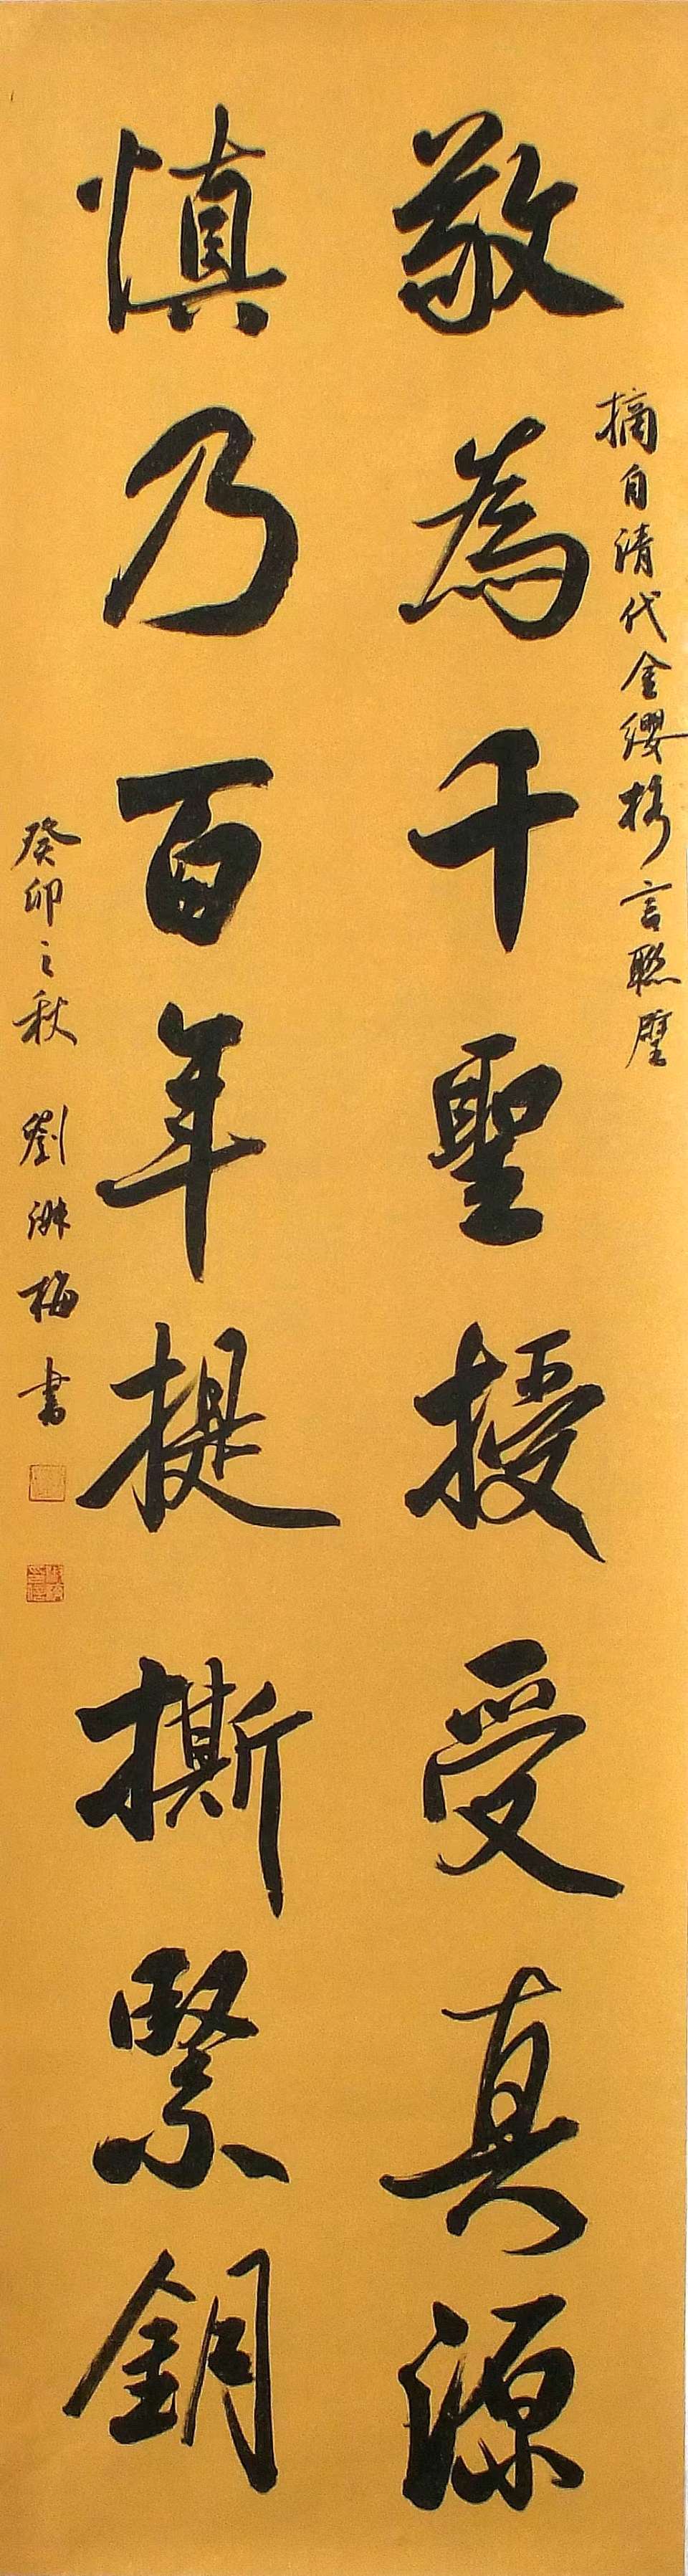 摘自清代金缨格言聯璧
敬為千聖授受真源
慎乃百年提撕緊鈅
癸卯之秋 劉淋梅書